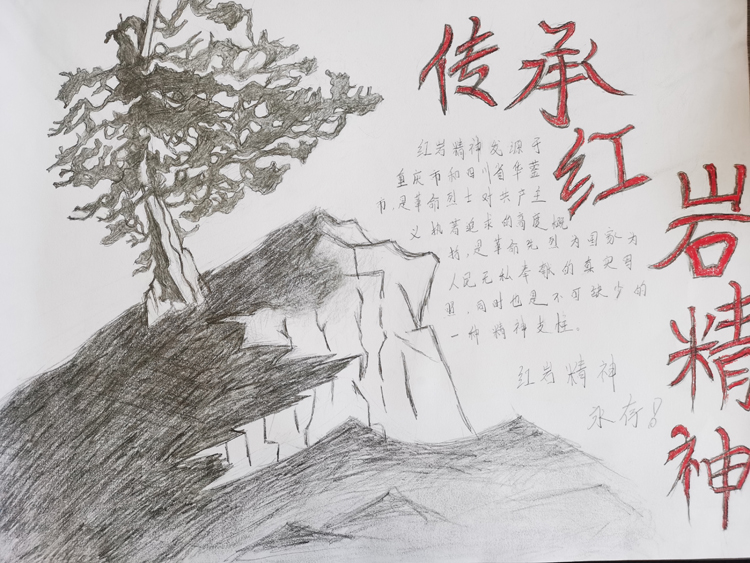 传承红岩精神
红岩精神发源于
重庆市和四川省华蓥
市,是革命烈士对共产主
义执着追求的高度概
括,是革命先烈为国家为
人民无私奉献的真实写
照,同时也是不可缺少的
一种精神支柱。
红岩精神
永存